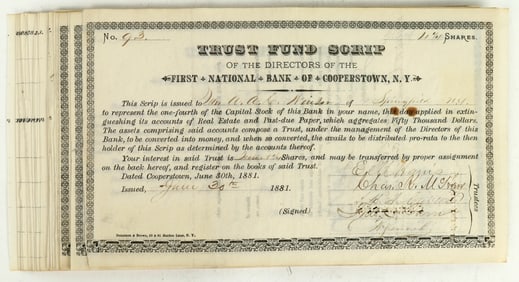 No. 93. SHARES.
TRUST FUND SCRIP
OF THE DIRECTORS OF THE
FIRST NATIONAL BANK OF COOPERSTOWN, N. Y.
This Scrip is issued to of
to represent the one-fourth of the Capital Stock of this Bank in your name, this day applied in extin-
guishing its accounts of Real Estate and Past-due Paper, which aggregates Fifty Thousand Dollars.
The assets comprising said accounts compose a Trust, under the management of the Directors of this
Bank, to be converted into money, and when so converted, the avails to be distributed pro-rata to the then
holder of this Scrip as determined by the accounts thereof.
Your interest in said Trust is Shares, and may be transferred by proper assignment
on the back hereof, and register on the books of said Trust.
Dated Cooperstown, June 30th, 1881.
Issued, June 30th 1881.
(Signed)
Trustees